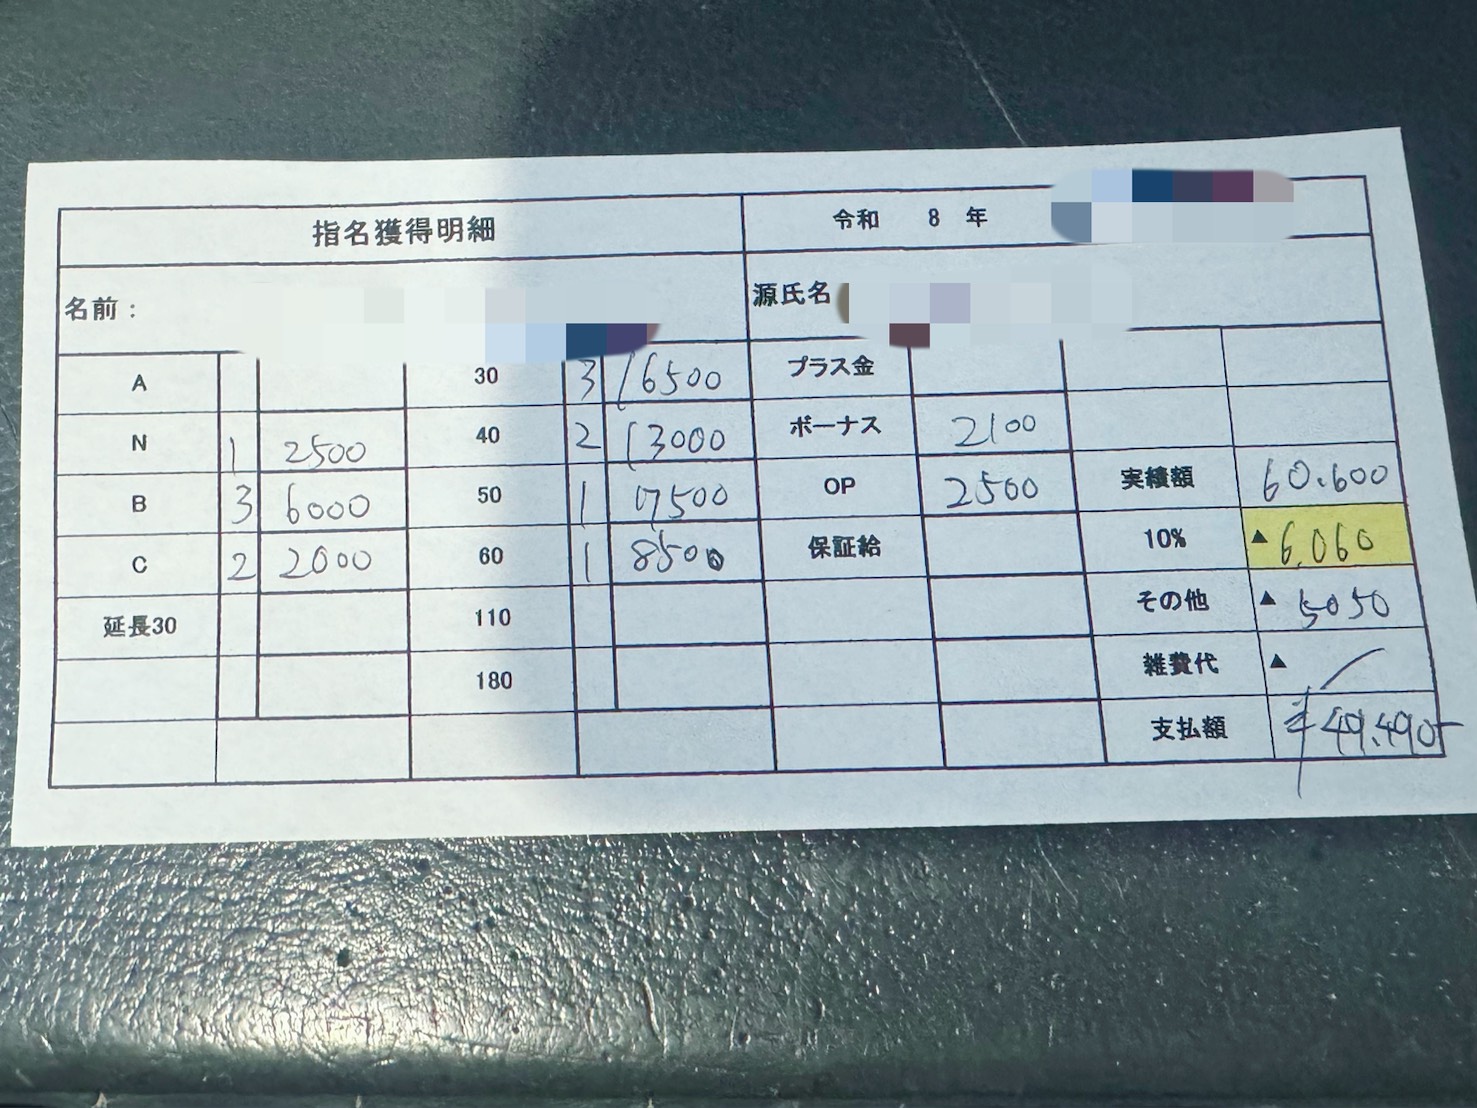 指名獲得明細 令和 8 年
名前： 源氏名
A 30 3 16500 プラス金
N 1 2500 40 2 13000 ボーナス 2100
B 3 6000 50 1 7500 OP 2500 実績額 60.600
C 2 2000 60 1 8500 保証給 10% ▲6.060
延長30 110 その他 ▲5050
180 雑費代 ▲／
支払額 ¥49.490-